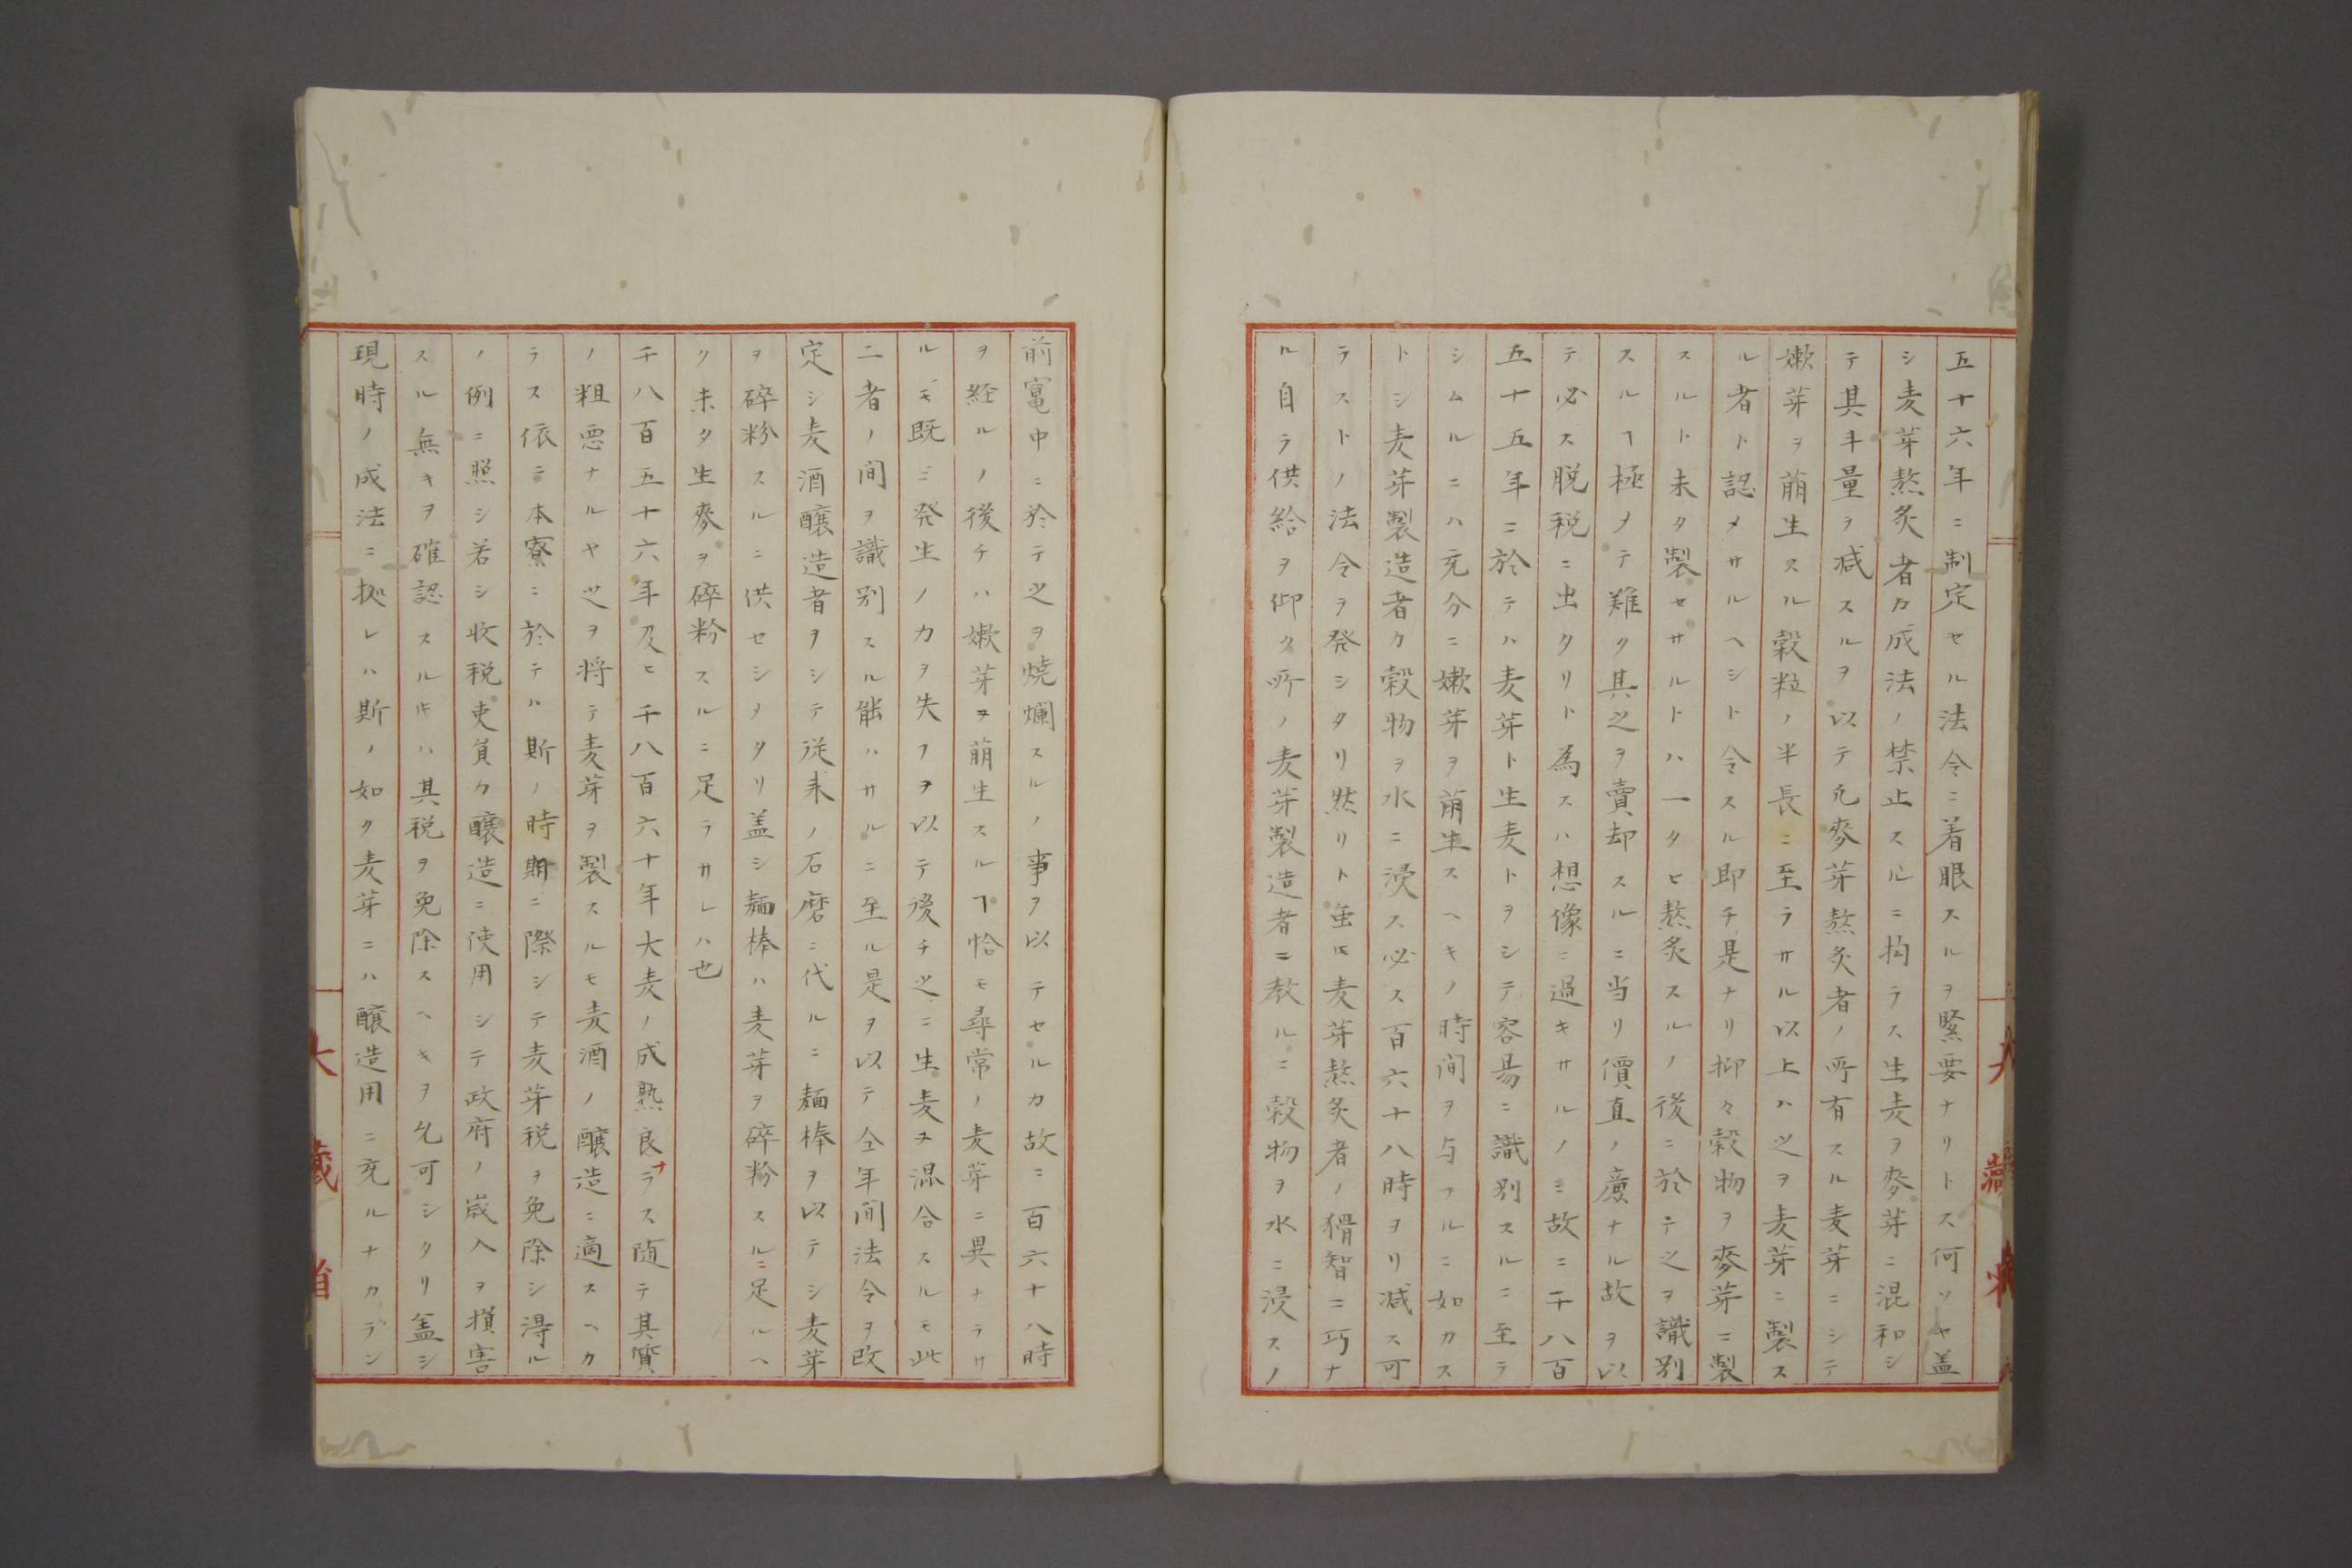 五十六年ニ制定セル法令ニ着眼スルヲ緊要ナリトス何ソヤ盖
シ麦芽熬炙者カ成法ノ禁止スルニ拘ラス生麦ヲ麥芽ニ混和シ
テ其斗量ヲ减スルヲ以テ凢麥芽熬炙者ノ所有スル麦芽ニシテ
嫰芽ヲ萠生スル穀粒ノ半長ニ至ラサル以上ハ之ヲ麦芽ニ製ス
ル者ト認メサルヘシト令スル即チ是ナリ抑々穀物ヲ麥芽ニ製
スルト未タ製セサルトハ一タヒ熬炙スルノ後ニ於テ之ヲ識別
スルヿ極メテ難ク其之ヲ賣却スルニ当リ價直ノ廉ナル故ヲ以
テ必ス脱税ニ出タリト為スハ想像ニ過キサルノミ故ニ千八百
五十五年ニ於テハ麦芽ト生麦トヲシテ容昜ニ識別スルニ至ラ
シムルニハ充分ニ嫰芽ヲ萠生スヘキノ時間ヲ与フルニ如カス
トシ麦芽製造者カ穀物ヲ水ニ浸ス必ス百六十八時ヨリ减ス可
ラストノ法令ヲ発シタリ然リト虽𪜈麦芽熬炙者ノ猾智ニ巧ナ
ル自ラ供給ヲ仰ク所ノ麦芽製造者ニ教ルニ穀物ヲ水ニ浸スノ
前竃中ニ於テ之ヲ焼爛スルノ事ヲ以テセルカ故ニ百六十八時
ヲ経ルノ後チハ嫰芽ヲ萠生スルヿ恰モ尋常ノ麦芽ニ異ナラサ
ルモ既ニ発生ノカヲ失フヲ以テ後チ之ニ生麦ヲ混合スルモ此
二者ノ間ヲ識別スル能ハサルニ至ル是ヲ以テ仝年間法令ヲ改
定シ麦酒醸造者ヲシテ従来ノ石磨ニ代ルニ麺棒ヲ以テシ麦芽
ヲ碎粉スルニ供セシメタリ盖シ麺棒ハ麦芽ヲ碎粉スルニ足ルヘ
ク未タ生麥ヲ碎粉スルニ足ラサレハ也
千八百五十六年及ヒ千八百六十年大麦ノ成熟良ナラス随テ其質
ノ粗悪ナルヤ之ヲ将テ麦芽ヲ製スルモ麦酒ノ醸造ニ適スヘカ
ラス依テ本寮ニ於テハ斯ノ時期ニ際シテ麦芽税ヲ免除シ得ル
ノ例ニ照シ若シ收税吏員カ醸造ニ使用シテ政府ノ歳入ヲ損害
スル無キヲ確認スル𪜈ハ其税ヲ免除スヘキヲ允可シタリ盖シ
現時ノ成法ニ拠レハ斯ノ如ク麦芽ニハ醸造用ニ充ルナカラン
大藏省